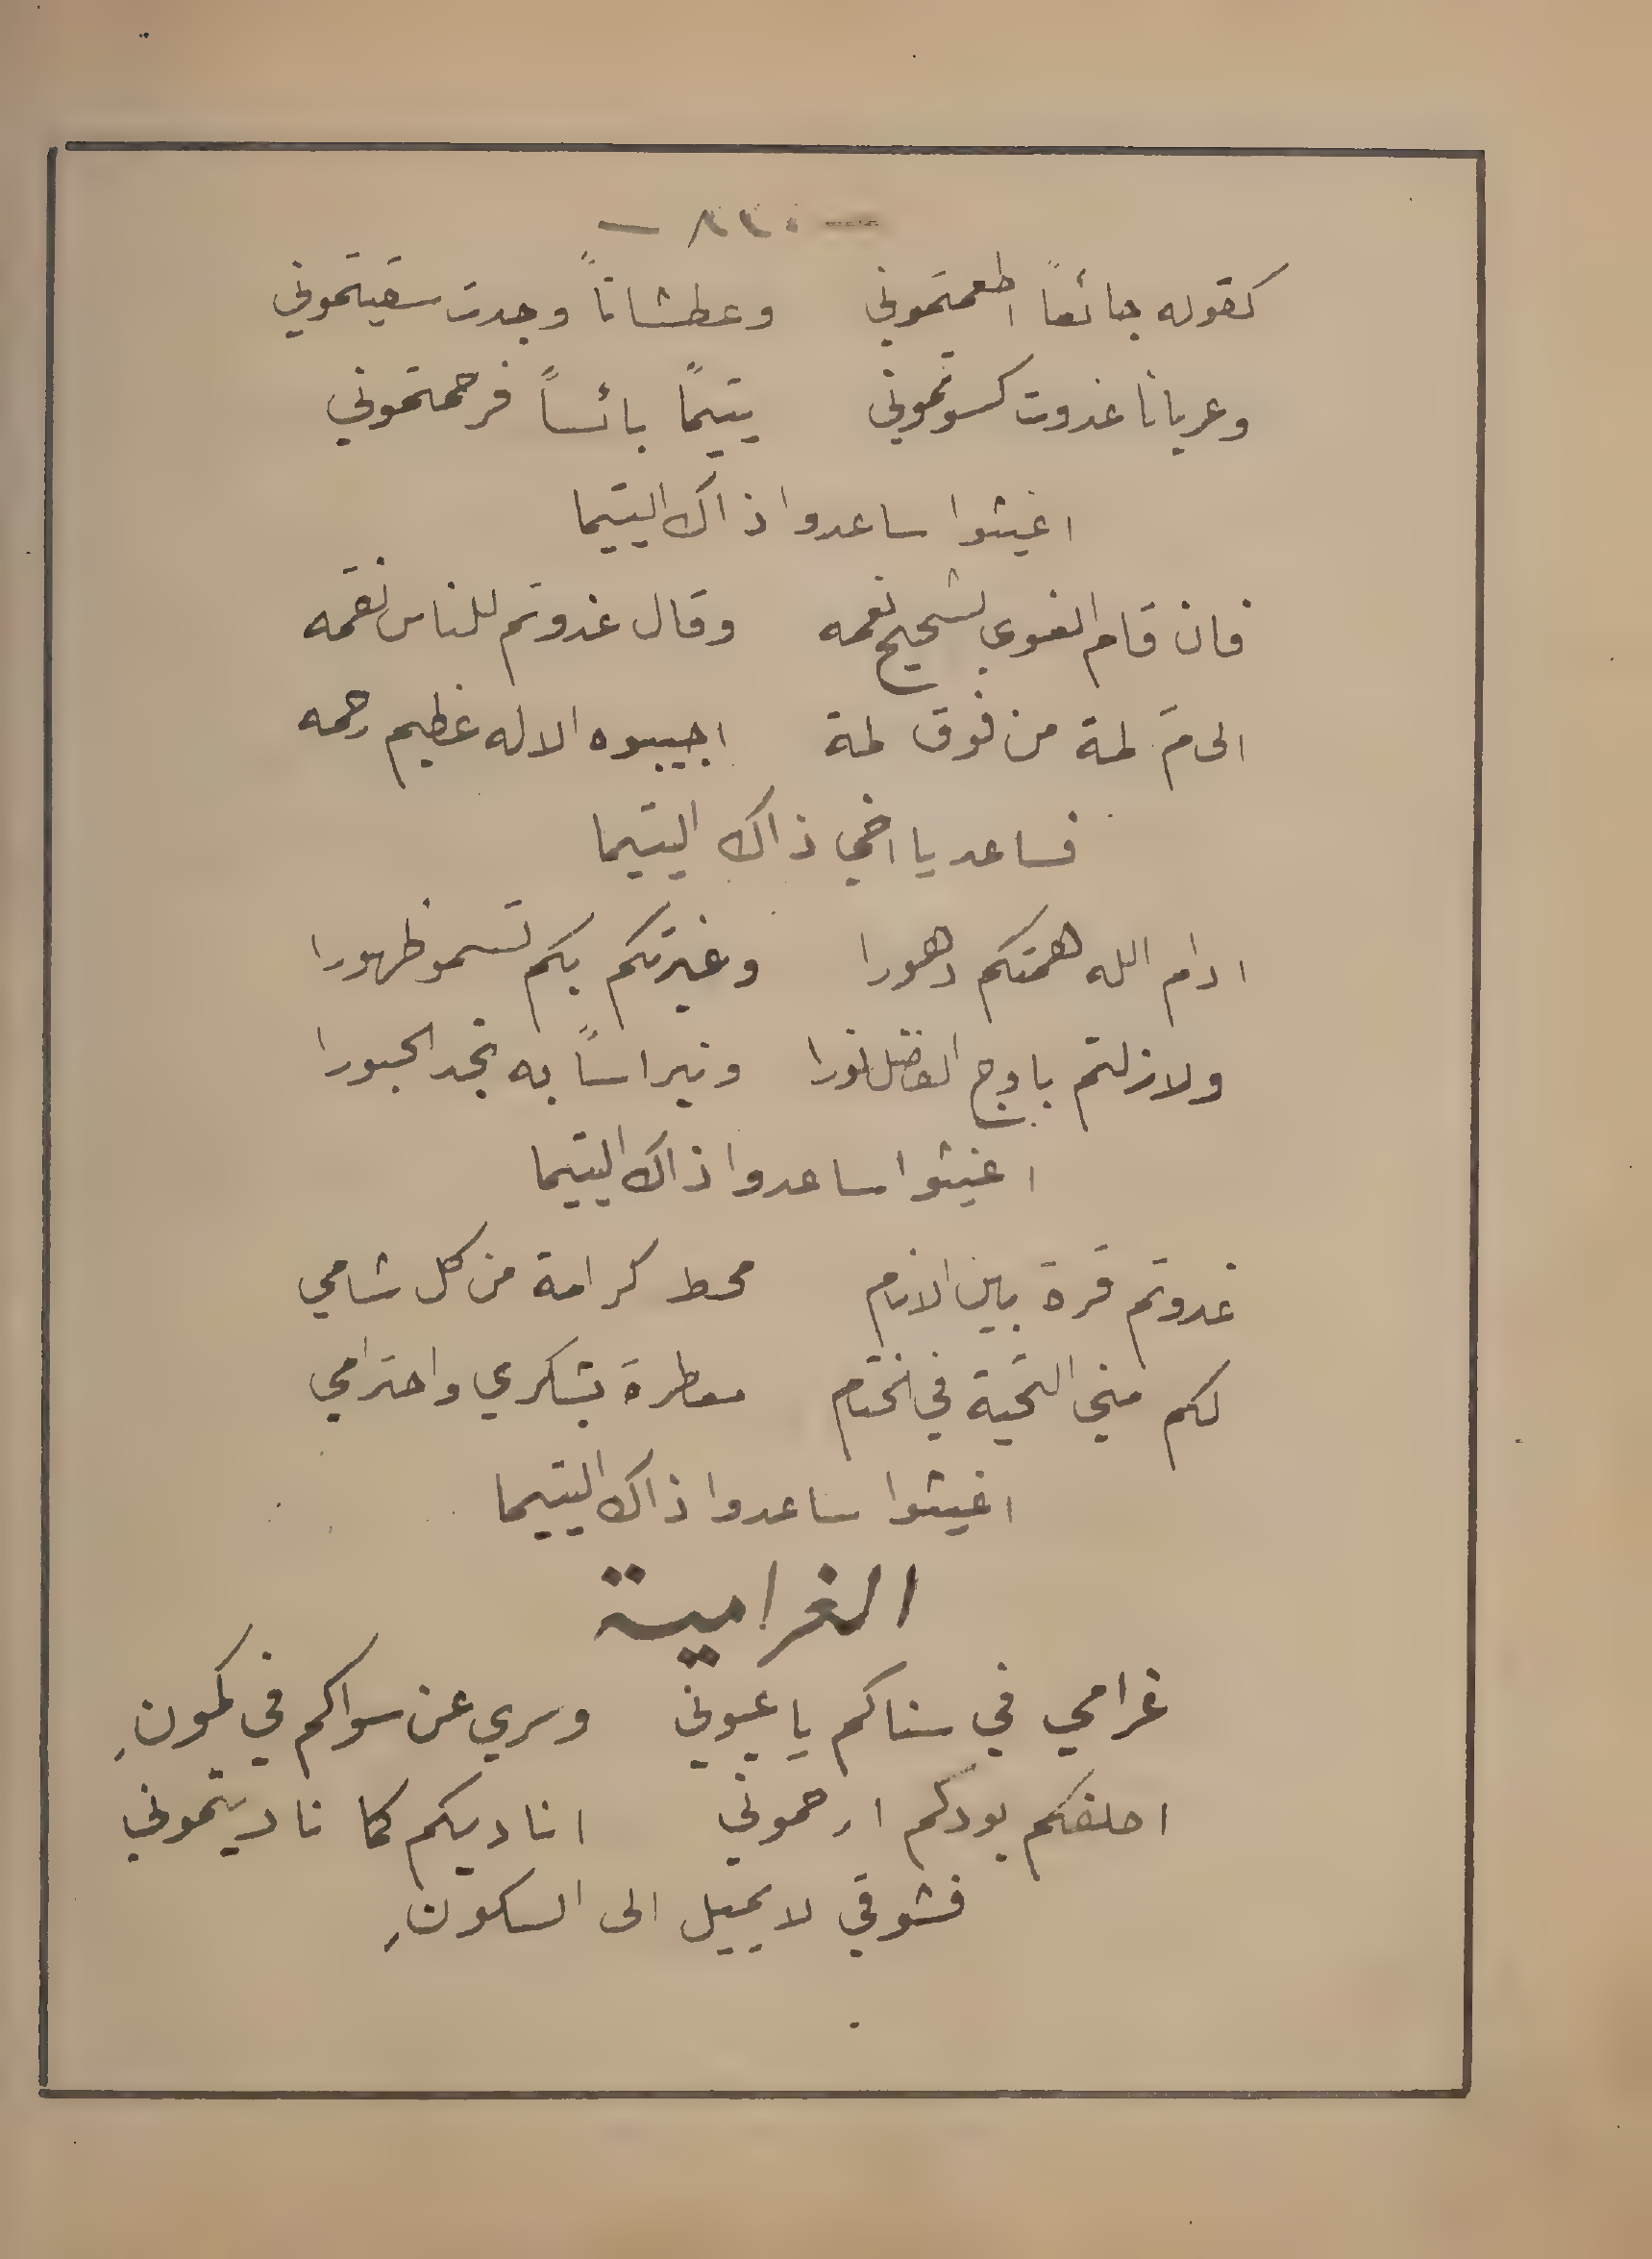 كقوله جائعاً اطعمتموني وعطشاناً وجدت سقيتموني
وعريانا غدوت كسوتموني يتيمًا بائساً فرحمتموني
اغيثوا ساعدوا ذاك اليتيما
فان قام الغوي لشحيح نعمه وقال غدوتم للناس نقمه
الى مَ لمة من فوق لمة اجيبوه الاله عظيم رحمه
فساعد يا اخي ذاك اليتيما
ادام الله همتكم دهورا وغيرتكم بكم تسمو ظهورا
ولازلتم باوج الفضل نورا ونبراساً به نجد الحبورا
اغيثوا ساعدوا ذاك اليتيما
غدوتم قرة بين الانام محط كرامة من كل شامي
لكم مني التحية في الختام معطرة بشكري واحترامي
اغيثوا ساعدوا ذاك اليتيما
الغرامية
غرامي في سناكم يا عيوني وسري عن سواكم في كمونِ
احلفكم بودكم ارحموني اناديكم كما ناديتموني
فشوقي لا يميل الى السكونِ